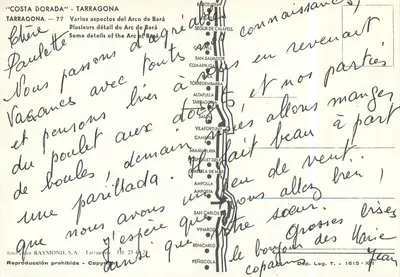 "COSTA DORADA" - TARRAGONA
TARRAGONA. — 77 Varios aspectos del Arco de Bará
Plusieurs détail du Arc de Bará
Some details of the Arc of Bará
Chère
Paulette
Nous passons d'agréables
Vacances avec toutes connaissances,
et pensons à nous en revenant
du poulet aux et nos parties
de boules! demain allons manger
une parillada. fait beau à part
que nous avons un peu de vent..
J'espère que vous allez bien!
ainsi que votre soeur.
Grosses bises
le bonjour des
copains Jean
SEGUR DE CALAFELL
SAN SALVADOR
COMARRUGA
TORREDEMBARRA
ALTAFULLA
TARRAGONA
SALOU
VILAFORTUNY
CAMBRILS
MIAMI PLAYA
AMETLLA
AMPOLLA
AMPOSTA
SAN CARLOS
VINAROZ
BENICARLO
PEÑISCOLA
RAYMOND, S.A. - Tarragona
Reproducción prohibida - Copyright
Dep. Leg. T. - 1615 - X